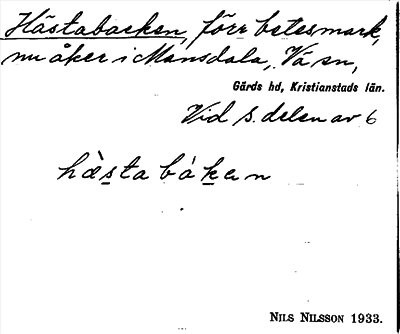 Hästabacken, förr betesmark,
nu åker i Mansdala, Vä sn,
Gärds hd, Kristianstads län.
Vid s. delen av 6
hὲsta bákan
NILS NILSSON 1933.